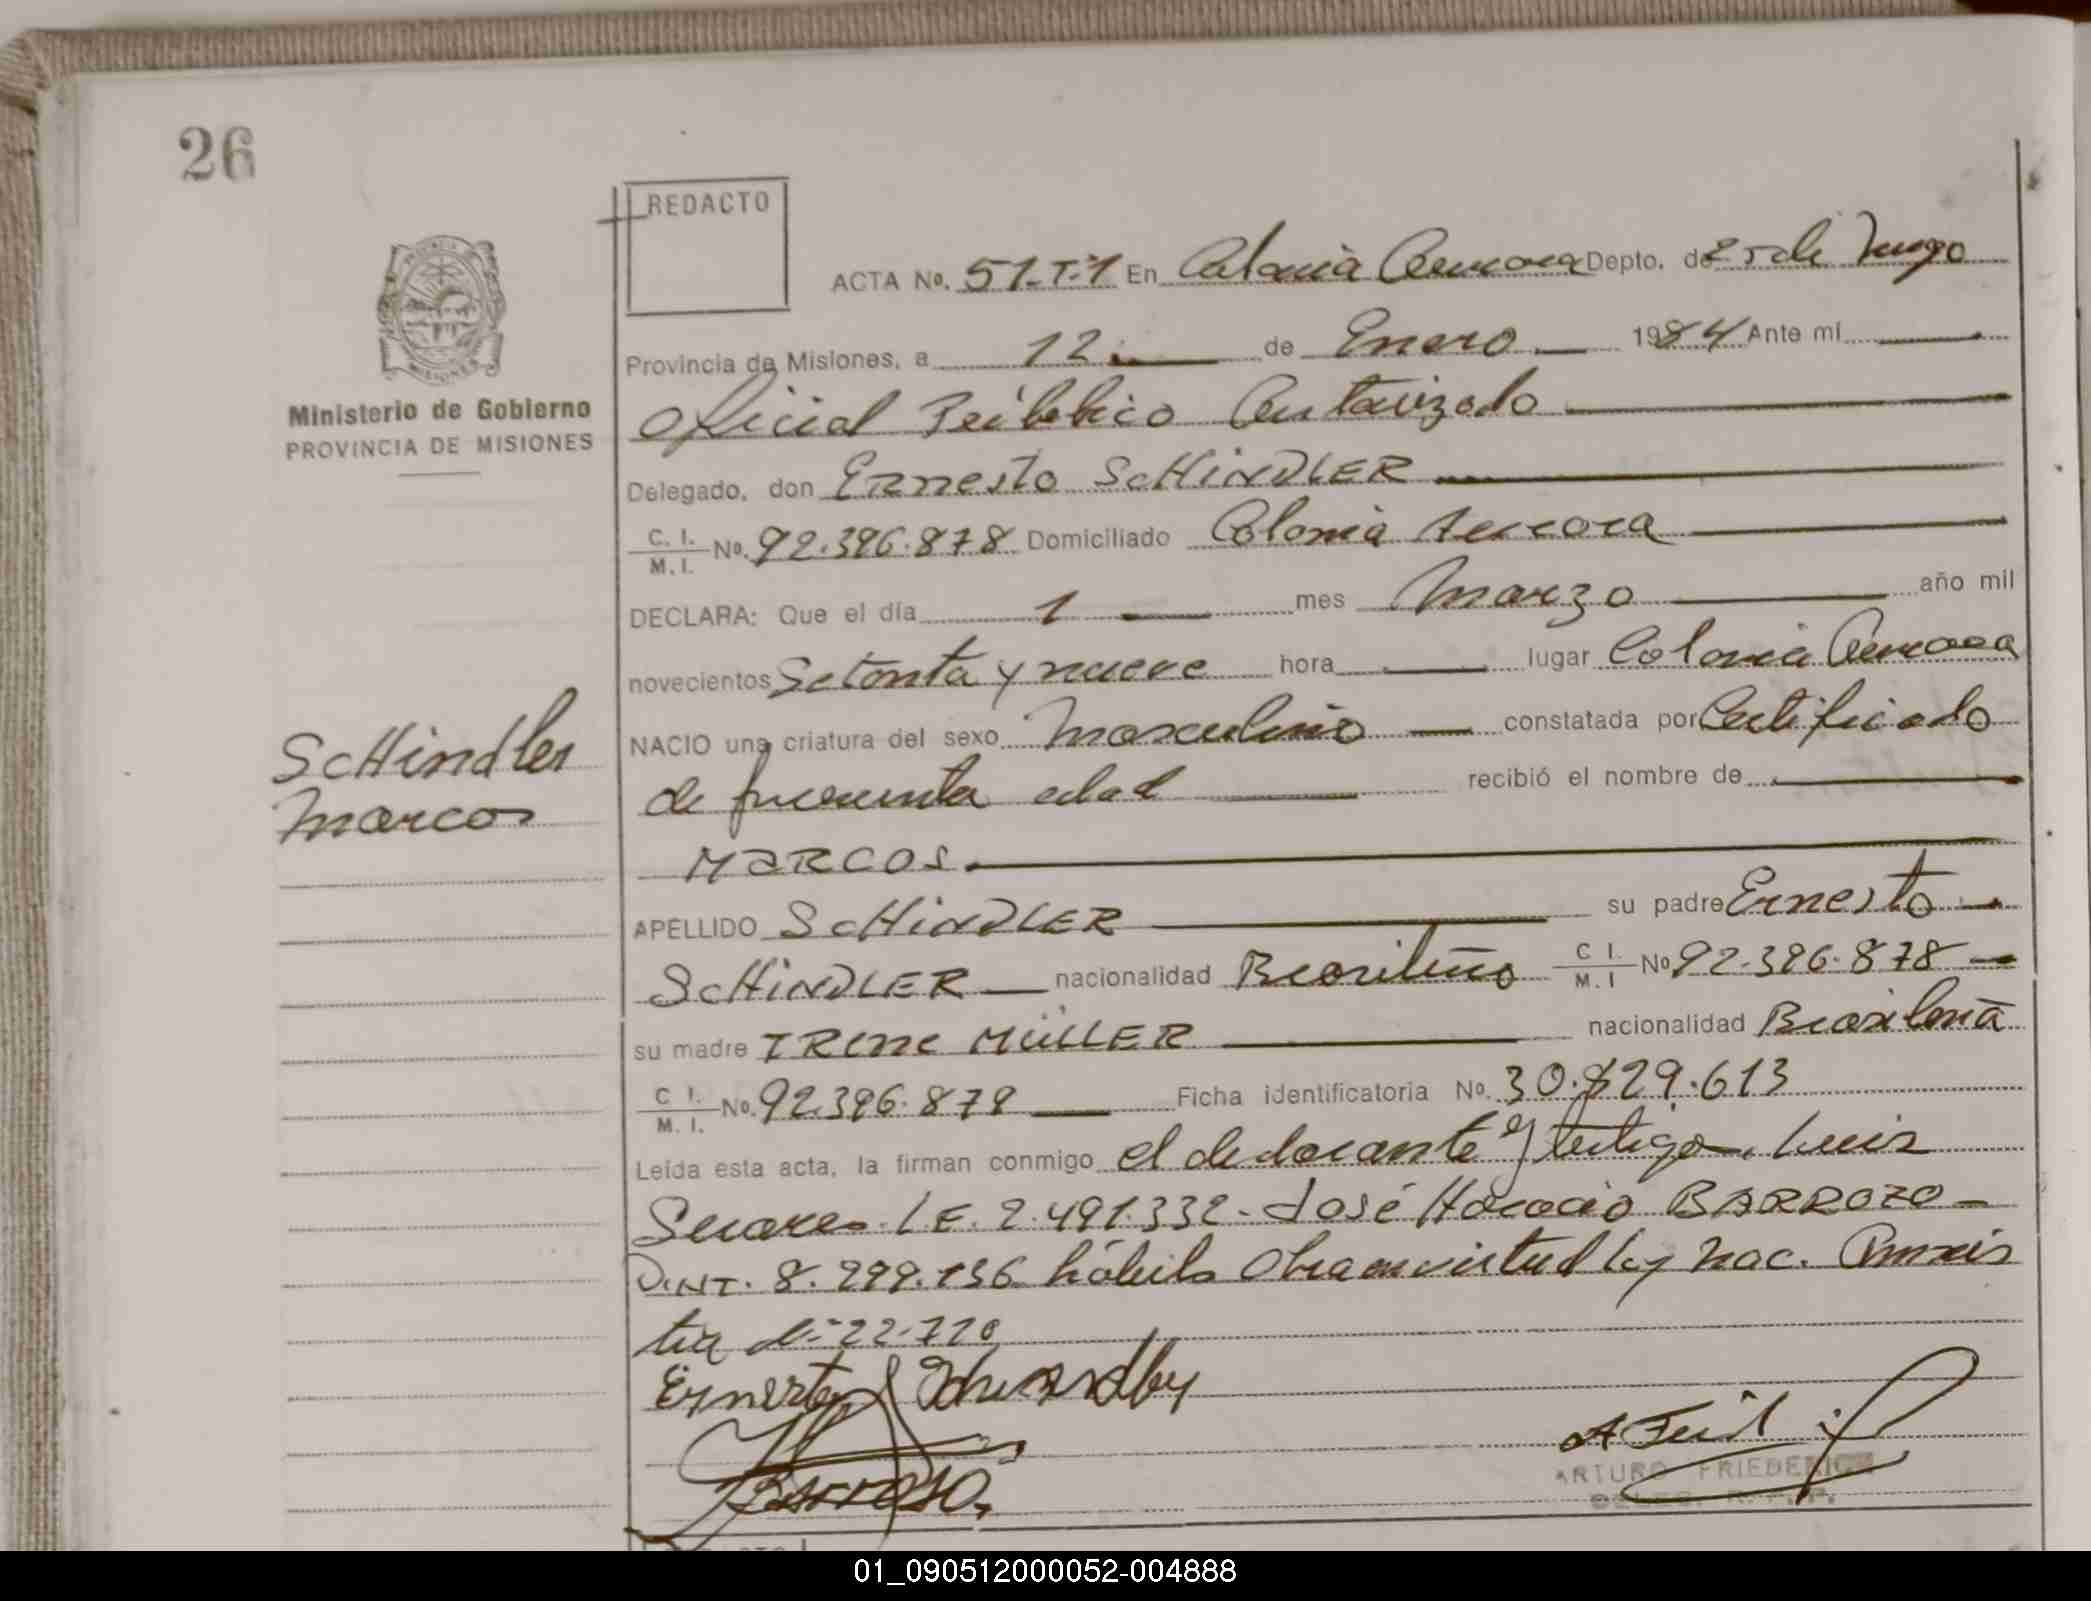 26
REDACTO
ACTA No. 51-T-1 En Colonia Aurora Depto. de 25 de Mayo
Provincia de Misiones, a 12 de Enero 1984 Ante mí
Oficial Público Autorizado
Ministerio de Gobierno
PROVINCIA DE MISIONES
Delegado, don Ernesto SCHINDLER
C. I. M. I. No. 92.396.878 Domiciliado Colonia Aurora
DECLARA: Que el día 1 mes Marzo año mil
novecientos Setenta y nueve hora lugar Colonia Aurora
NACIO una criatura del sexo Masculino constatada por Certificado
de presunta edad recibió el nombre de
Schindler
Marcos
MARCOS.
APELLIDO SCHINDLER su padre Ernesto
SCHINDLER nacionalidad Brasileño C I. M. I No 92.396.878
su madre IRENE MÜLLER nacionalidad Brasileña
C I. M. I. No. 92.396.879 Ficha identificatoria No. 30.829.613
Leída esta acta, la firman conmigo el declarante y testigos. Luis
Suares. L.E. 2.491.332 - José Horacio BARROZO
D.N.I. 8.299.136 hábiles Obra en virtud ley nac. Amnis
tia 22.720
ARTURO FRIEDERICH
01_090512000052-004888